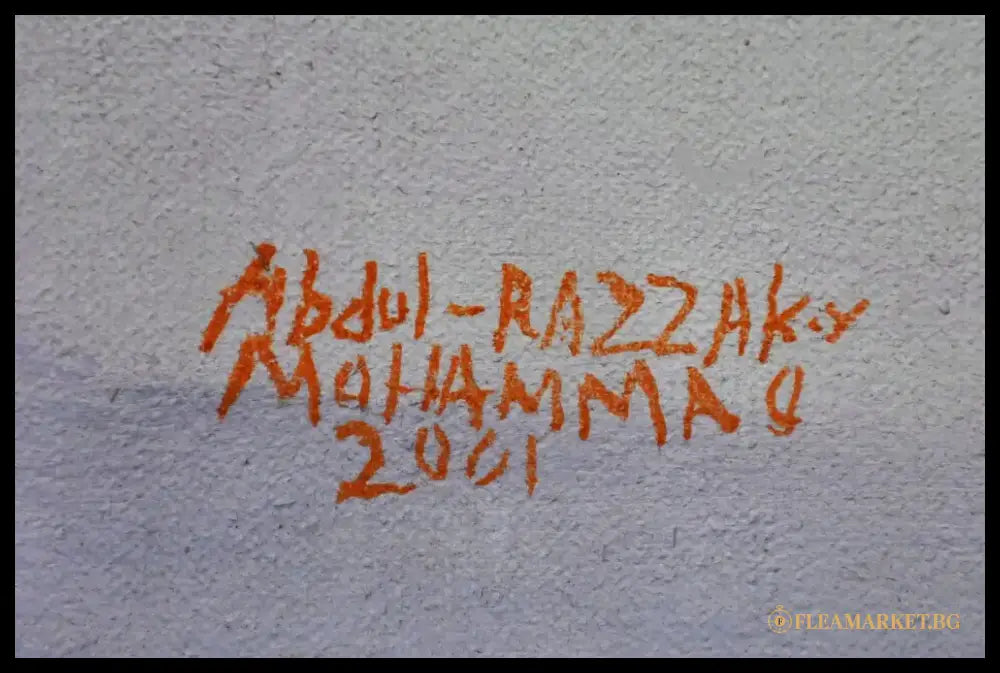 Abdul-RAZZAK.Y
MOHAMMAD
2001
FLEAMARKET.BG